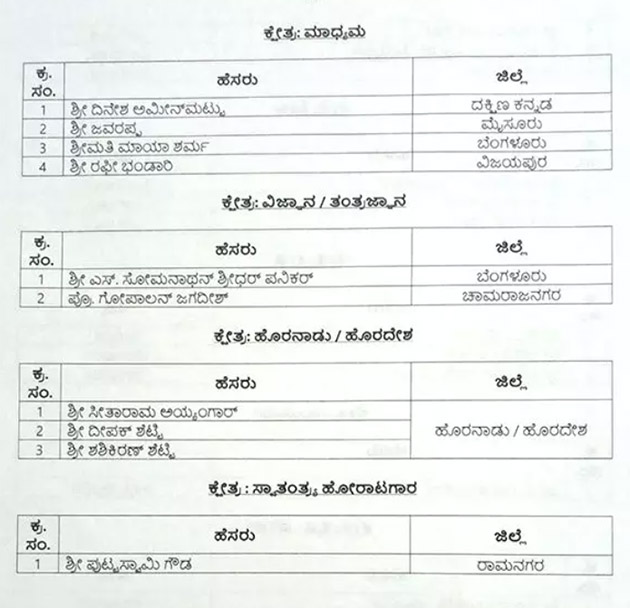 ಕ್ಷೇತ್ರ: ಮಾಧ್ಯಮ
ಕ್ರ. ಸಂ. ಹೆಸರು ಜಿಲ್ಲೆ
1 ಶ್ರೀ ದಿನೇಶ ಅಮೀನ್‌ಮಟ್ಟು ದಕ್ಷಿಣ ಕನ್ನಡ
2 ಶ್ರೀ ಜವರಪ್ಪ ಮೈಸೂರು
3 ಶ್ರೀಮತಿ ಮಾಯಾ ಶರ್ಮ ಬೆಂಗಳೂರು
4 ಶ್ರೀ ರಫೀ ಭಂಡಾರಿ ವಿಜಯಪುರ
ಕ್ಷೇತ್ರ: ವಿಜ್ಞಾನ / ತಂತ್ರಜ್ಞಾನ
ಕ್ರ. ಸಂ. ಹೆಸರು ಜಿಲ್ಲೆ
1 ಶ್ರೀ ಎಸ್. ಸೋಮನಾಥನ್ ಶ್ರೀಧರ್ ಪನಿಕರ್ ಬೆಂಗಳೂರು
2 ಪ್ರೊ. ಗೋಪಾಲನ್ ಜಗದೀಶ್ ಚಾಮರಾಜನಗರ
ಕ್ಷೇತ್ರ: ಹೊರನಾಡು / ಹೊರದೇಶ
ಕ್ರ. ಸಂ. ಹೆಸರು ಜಿಲ್ಲೆ
1 ಶ್ರೀ ಸೀತಾರಾಮ ಅಯ್ಯಂಗಾರ್
2 ಶ್ರೀ ದೀಪಕ್ ಶೆಟ್ಟಿ ಹೊರನಾಡು / ಹೊರದೇಶ
3 ಶ್ರೀ ಶಶಿಕಿರಣ್ ಶೆಟ್ಟಿ
ಕ್ಷೇತ್ರ : ಸ್ವಾತಂತ್ರ್ಯ ಹೋರಾಟಗಾರ
ಕ್ರ. ಸಂ. ಹೆಸರು ಜಿಲ್ಲೆ
1 ಶ್ರೀ ಪುಟ್ಟಸ್ವಾಮಿ ಗೌಡ ರಾಮನಗರ